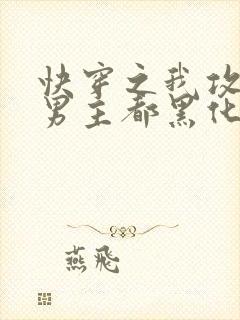 快穿之我攻
男主都黑化
燕飛